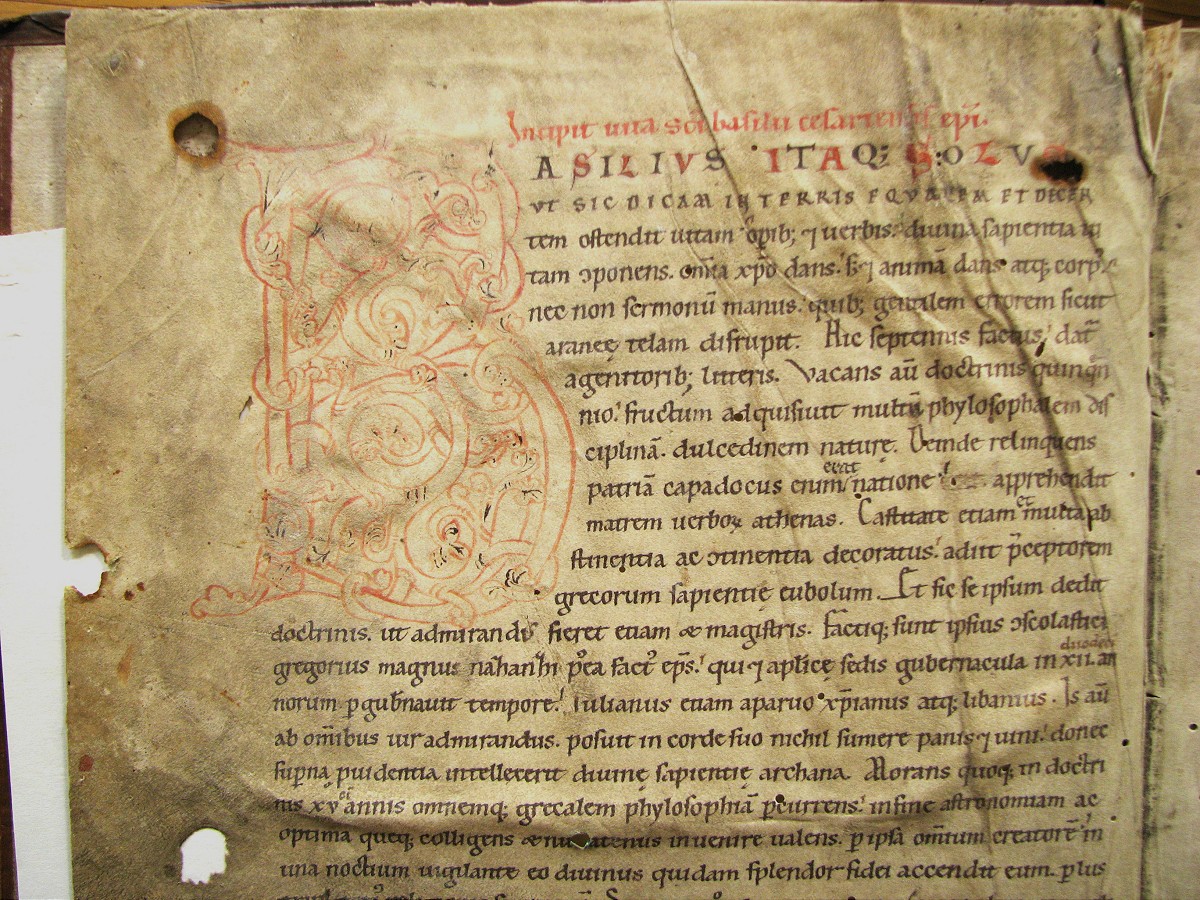 Incipit uita sci basilii cesariensis epi.
BASILIVS ITAQ; SOLVS
VT SIC DICAM IN TERRIS EQVALEM ET DECEN
tem ostendit uitam opib; ⁊ uerbis. diuina sapientia in
tam ɔponens. omia xpo dans. ⁊ animā dans atq; corp
nec non sermonū manus. quib; gentilem errorem sicut
araneę telam disrupit. Hic septennis factus, dat
a genitorib; litteris. Vacans aū doctrinis quinqn
nio. fructum adquisiuit multū phylosophalem dis
ciplinā. dulcedinem naturę. Deinde relinquens
patriā capadocus enim erat natione apprehendit
matrem uerboꝝ athenas. Castitate etiam et multa ab
stinentia ac ɔtinentia decoratus. adiit p̄ceptorem
grecorum sapientię eubolum. Et sic se ipsum dedit
doctrinis. ut admirandus fieret etiam & magistris. Factiq; sunt ipsius ɔscolastici
gregorius magnus nahanhi p̄ea fact᾽ ep̄s. qui ⁊ aplicę sedis gubernacula in xii. an
norum p gub̄nauit tempore. Iulianus etiam a paruo xp̄ianus atq; libanius. Is aū
ab om̄ibus uir admirandus. posuit in corde suo nichil sumere panis ⁊ uini. donec
sup̄na puidentia intellexerit diuinę sapientię archana. Morans quoq; in doctri
nis xv et annis omnemq; grecalem phylosophiā pcurrens. in fine astronomiam ac
optima queq; colligens & nullatenus inuenire ualens. p ipsa omium creatorē in
una noctium uigilante eo diuinus quidam splendor fidei accendit eum. p lus